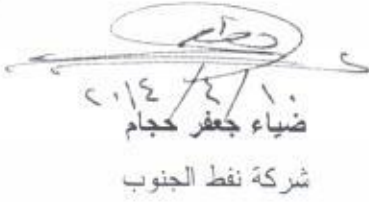 ٢٠١٤/٤/١٠
ضياء جعفر حجام
شركة نفط الجنوب